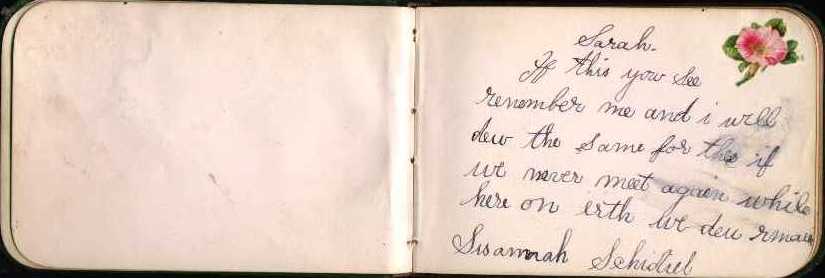 Sarah.
If this you see
remember me and i will
dew the same for the if
we never meet again while
here on erth we dew rmain
Susannah